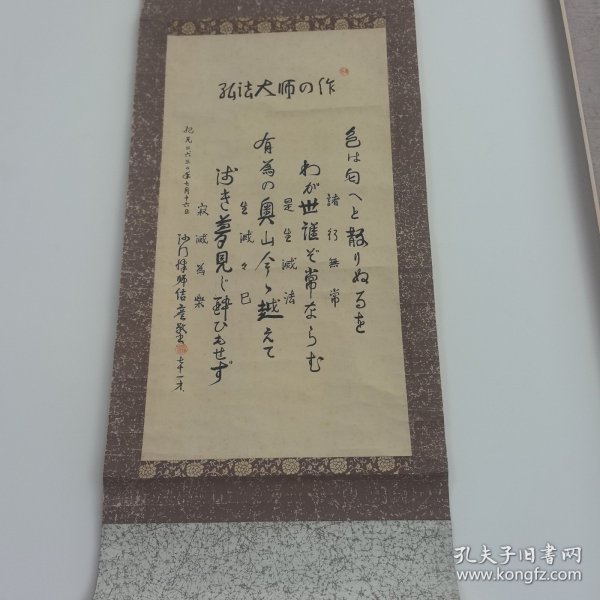 弘法大师の作
色は匂へと散りぬるを
諸行無常
わが世誰ぞ常ならむ
是生滅法
有為の奥山今々越えて
生滅々已
浅き夢見じ酔ひもせず
寂滅為楽
紀元二六三〇年七月十六日
沙门
七十一才
孔夫子旧書网
www.kongfz.com